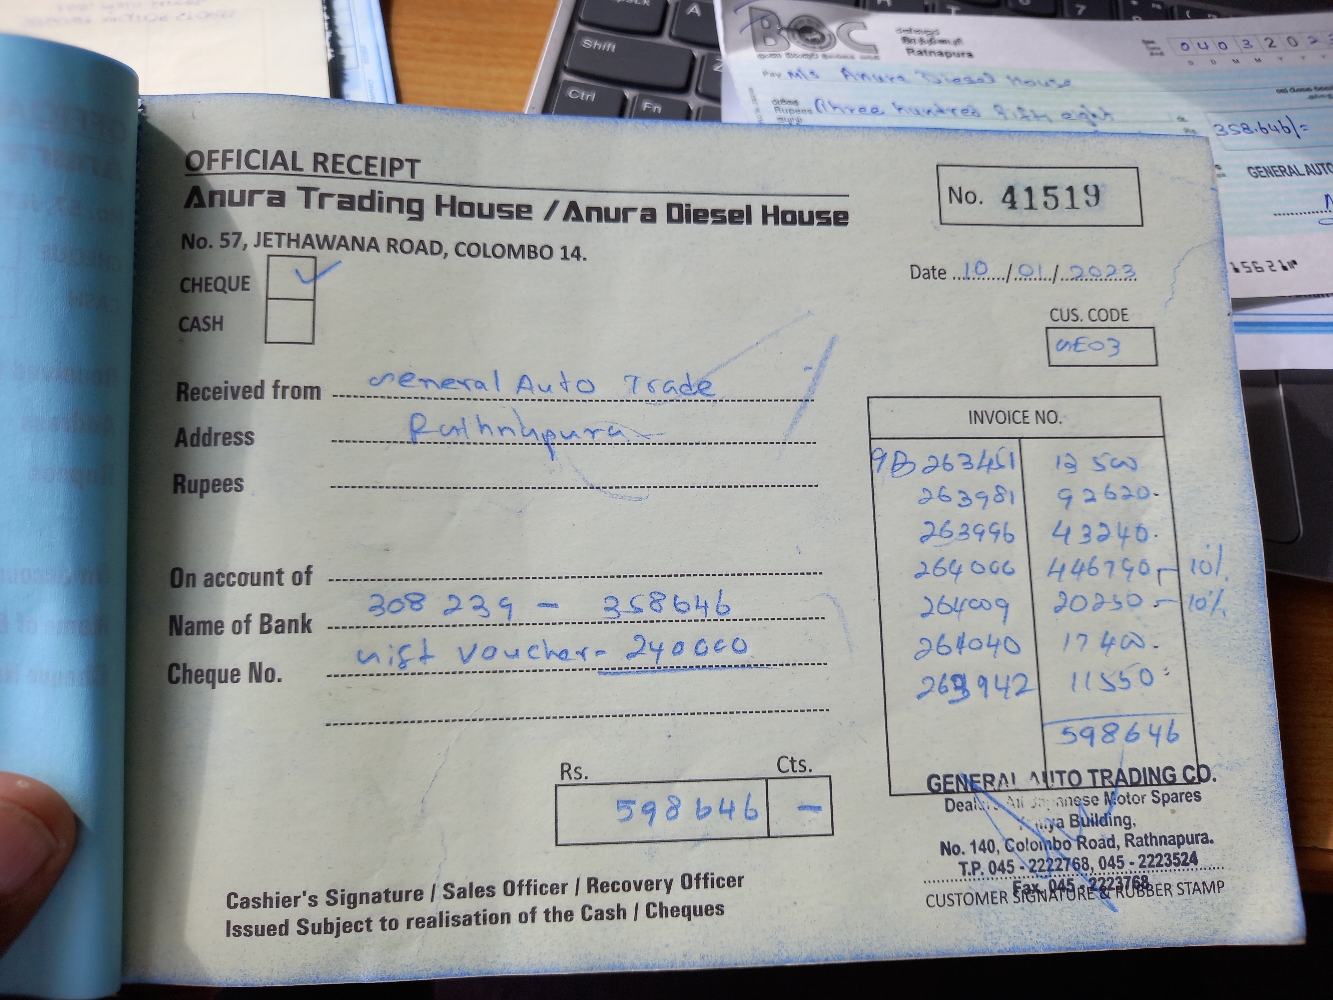 BOC
Ratnapura
04032023
Pay M/s Anura Diesel House
Rupees Three hundred fifty eight
358.646/=
GENERAL AUTO
Shift
Ctrl
Fn
A
7
OFFICIAL RECEIPT
Anura Trading House / Anura Diesel House
No. 57, JETHAWANA ROAD, COLOMBO 14.
No. 41519
CHEQUE ✓
CASH
Date 10/01/2023
CUS. CODE
GE03
Received from General Auto Trade
Address Rathnapura
Rupees
On account of
Name of Bank 308 239 - 358646
Cheque No. Gift Voucher - 240000
INVOICE NO.
9B 263451 13500
263981 92620.
263996 43240.
264006 446790 - 10%
264009 20250 - 10%
264040 17400.
263942 11550
598646
Rs. Cts.
598646 -
GENERAL AUTO TRADING CO.
Japanese Motor Spares
Building,
No. 140, Colombo Road, Rathnapura.
T.P. 045 - 2222768, 045 - 2223524
Fax 045 - 2223768
CUSTOMER SIGNATURE & RUBBER STAMP
Cashier's Signature / Sales Officer / Recovery Officer
Issued Subject to realisation of the Cash / Cheques